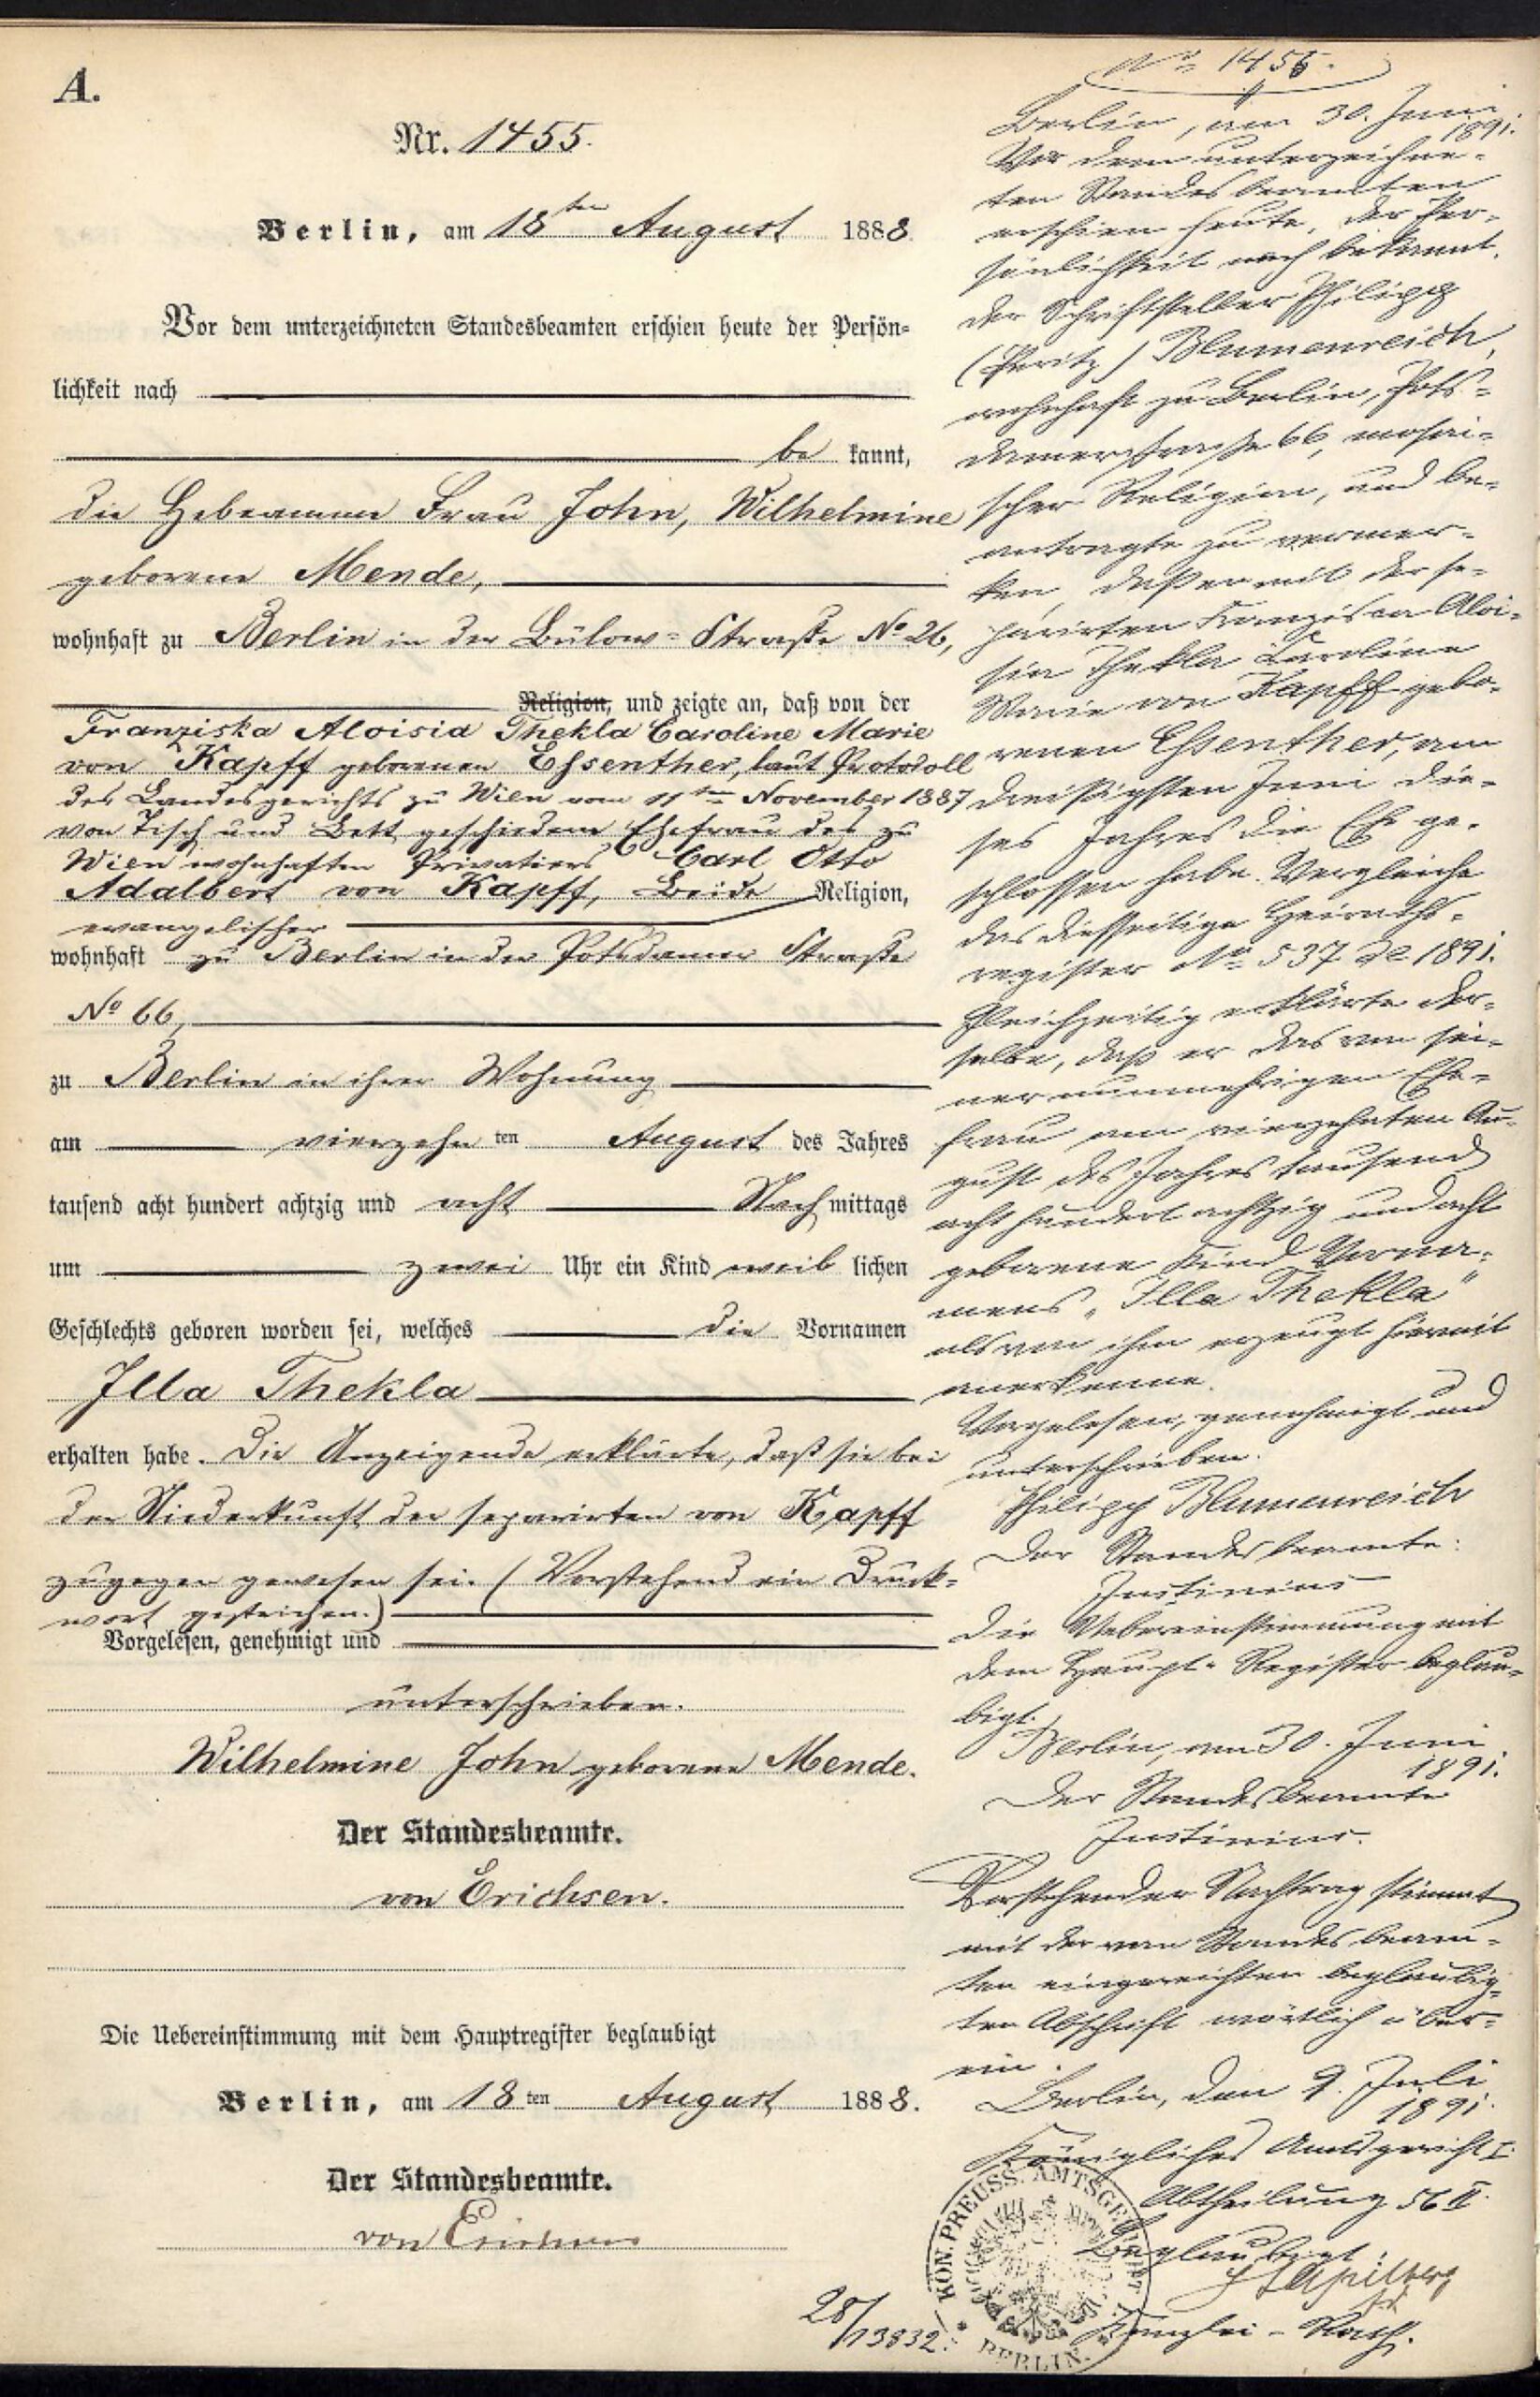 A.
Nr. 1455.
Berlin, am 18ten August 1888.
Vor dem unterzeichneten Standesbeamten erschien heute der Persön=
lichkeit nach
be kannt,
die Hebeamme Frau John, Wilhelmine
geborene Mende,
wohnhaft zu Berlin in der Bülow=Straße No 26,
Religion, und zeigte an, daß von der
Franziska Aloisia Thekla Caroline Marie
von Kapff geborenen Essenther, laut Protocoll
des Landesgerichts zu Wien vom 11ten November 1887
von Tisch und Bett geschiedene Ehefrau des zu
Wien wohnhaften Privatiers Carl Otto
Adalbert von Kapff, Beide Religion,
evangelischer
wohnhaft zu Berlin in der Potsdamer Straße
No 66,
zu Berlin in ihrer Wohnung
am vierzehn ten August des Jahres
tausend acht hundert achtzig und acht Nach mittags
um zwei Uhr ein Kind weib lichen
Geschlechts geboren worden sei, welches die Vornamen
Illa Thekla
erhalten habe. Die Anzeigende erklärte, daß sie bei
der Niederkunft der separirten von Kapff
zugegen gewesen sei. (Vorstehend ein Druck=
wort gestrichen.)
Vorgelesen, genehmigt und
unterschrieben.
Wilhelmine John geborene Mende.
Der Standesbeamte.
von Erichsen.
Die Uebereinstimmung mit dem Hauptregister beglaubigt
Berlin, am 18ten August 1888.
Der Standesbeamte.
von Erichsen
No 1455.
Berlin, am 30. Juni
1891.
Vor dem unterzeichne=
ten Standesbeamten
erschien heute, der Per=
sönlichkeit nach bekannt,
der Schriftsteller Philipp
(Peritz) Blumenreich,
wohnhaft zu Berlin, Pots=
damerstraße 66, mosai=
scher Religion, und be=
antragte zu vermer=
ken, daß er mit der se=
parirten Franzisca Aloi=
sia Thekla Caroline
Marie von Kapff gebo=
renen Essenther, am
dreißigsten Juni die=
ses Jahres die Ehe ge=
schlossen habe. Vergleiche
das diesseitige Heiraths=
register No 537 de 1891.
Gleichzeitig erklärte der=
selbe, daß er das von sei=
ner nunmehrigen Ehe=
frau am vierzehnten Au=
gust des Jahres tausend
acht hundert achtzig und acht
geborene Kind Vorna=
mens „Illa Thekla"
als von ihm erzeugt hiermit
anerkenne.
Vorgelesen, genehmigt und
unterschrieben.
Philipp Blumenreich
Der Standesbeamte:
Die Uebereinstimmung mit
dem Haupt=Register beglau=
bigt.
Berlin, am 30. Juni
1891.
Der Standesbeamte
Vorstehender Nachtrag stimmt
mit der vom Standesbeam=
ten eingereichten beglaubig=
ten Abschrift wörtlich über=
ein.
Berlin, den 9. Juli
1891.
Königliches Amtsgericht I.
Abtheilung 56 II.
Beglaubigt:
Kanzlei=Rath.
KÖN. PREUSS. AMTSGERICHT I
* BERLIN. *
28/13832.